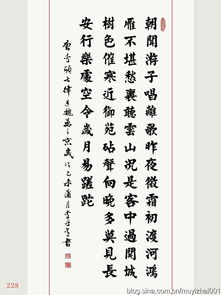 朝聞游子唱離歌昨夜微霜初渡河鴻
雁不堪愁裏聽雲山況是客中過關城
樹色催寒近御苑砧聲向晚多莫見長
安行樂處空令歲月易蹉跎
唐李頎七律送魏萬之京歲次乙未蒲月李書
228
blog.sina.com.cn/muyizhei001